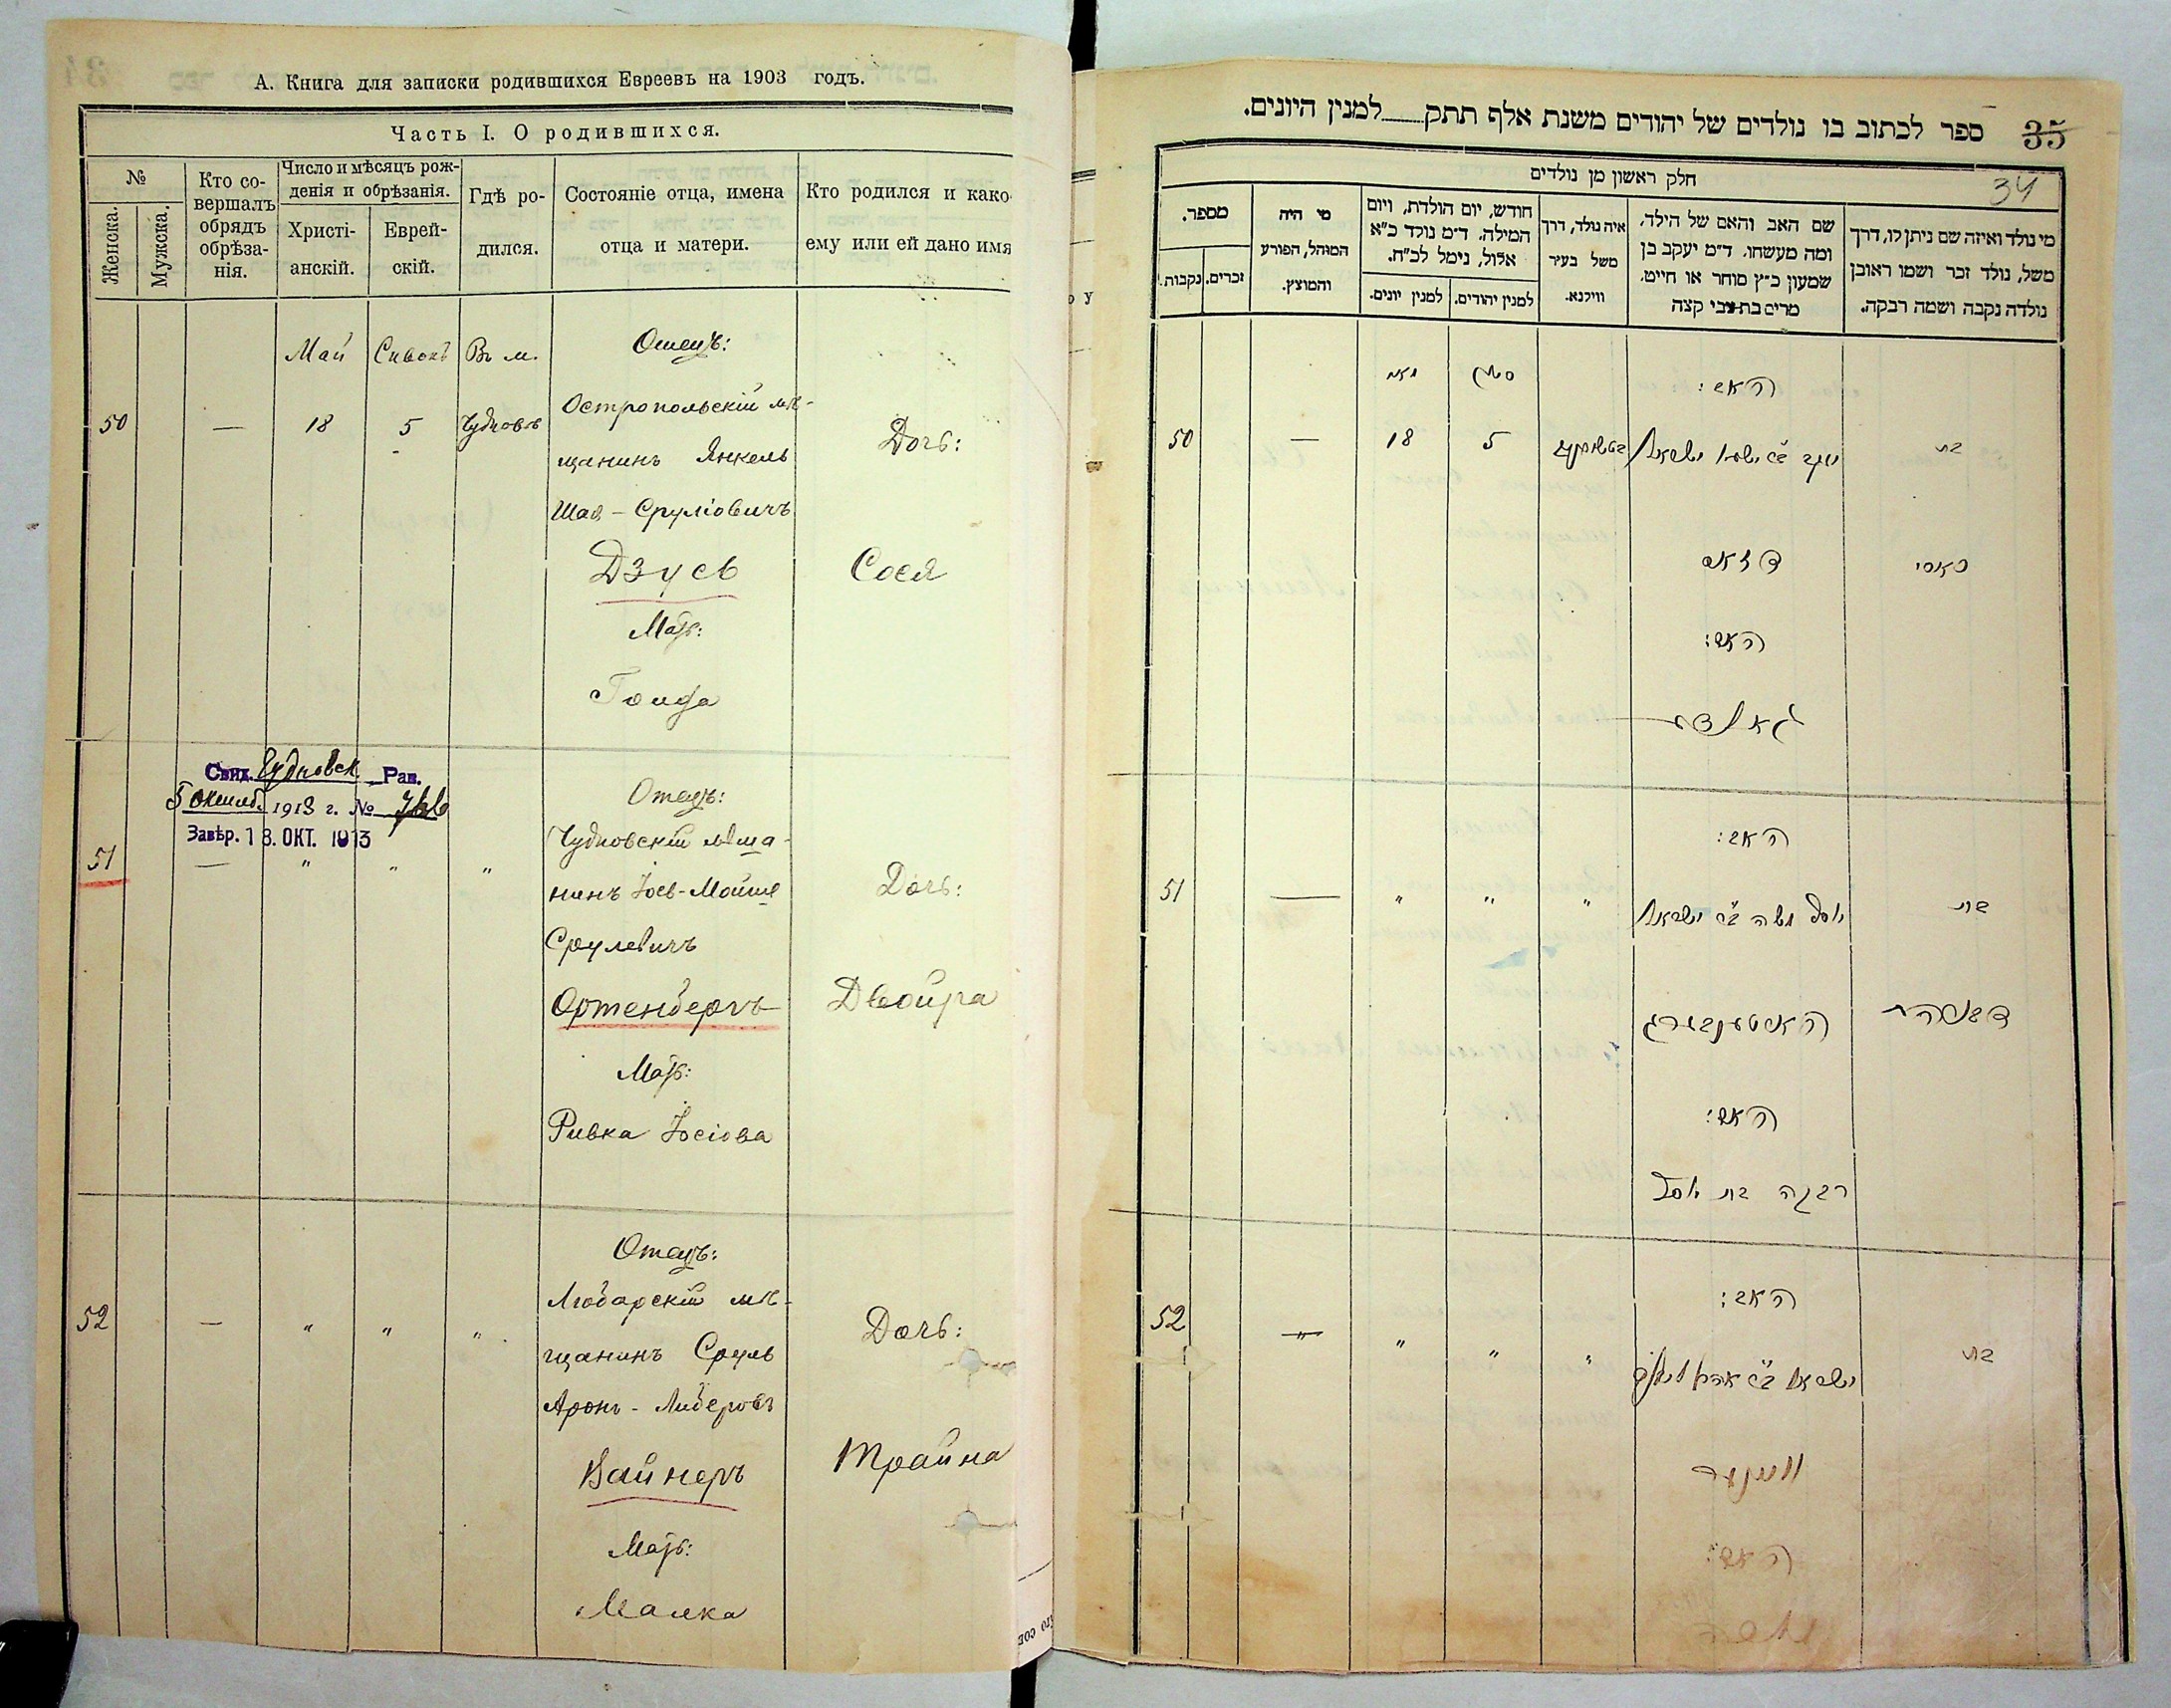 А. Книга для записки родившихся Евреевъ на 1903 годъ.
Часть I. О родившихся.
№
Женска.
Мужска.
Кто со-
вершалъ
обрядъ
обрѣза-
нія.
Число и мѣсяцъ рож-
денія и обрѣзанія.
Христі-
анскій.
Еврей-
скій.
Гдѣ ро-
дился.
Состояніе отца, имена
отца и матери.
Кто родился и како
ему или ей дано имя
Май Сивонъ Въ м. Отецъ:
Остропольскій мѣ-
50 — 18 5 Чудновѣ
щанинъ Янкель Дочь:
Шая - Сруліовичъ
Дзусь Сося
Мать:
Голда
Свид. Чудновск. Рав.
5 октяб. 1913 г. №
Завѣр. 18. ОКТ. 1913
Отецъ:
Чудновскій мѣща-
51 — " " "
нинъ Іосъ-Мойше Дочь:
Срулевичъ
Ортенбергъ Двойра
Мать:
Ривка Іосіова
Отецъ:
Любарскій мѣ-
52 — " " "
щанинъ Сруль Дочь:
Аронъ - Лидеровъ
Вайнеръ Трайна
Мать:
Малка
ספר לכתוב בו נולדים של יהודים משנת אלף תתק למנין היונים.
35
34
חלק ראשון מן נולדים
מי נולד ואיזה שם ניתן לו, דרך
משל, נולד זכר ושמו ראובן
נולדה נקבה ושמה רבקה.
שם האב והאם של הילד,
ומה מעשהו. ד״מ יעקב בן
שמעון כ״ץ סוחר או חייט,
מרים בת צבי קצה
איה נולד, דרך
משל בעיר
ווילנא.
חודש, יום הולדת, ויום
המילה. ד״מ נולד כ״א
אלול, נימל לכ״ח.
למנין יהודים.
למנין יונים.
מי היה
המוהל, הפורע
והמוצץ.
מספר.
זכרים.
נקבות.
האב: סיון מאי
בת יעקב ב״ר ישעי׳ ישראל 5 18 — 50
סאסי דזוס
האם:
גאלדע
האב:
בת יוסף משה ב״ר ישראל " " " — 51
דבורה ארטענבערג
האם:
רבקה בת יוסף
האב:
52
בת ישראל ב״ר אהרן " " " —
ווײנער
האם:
מלכה